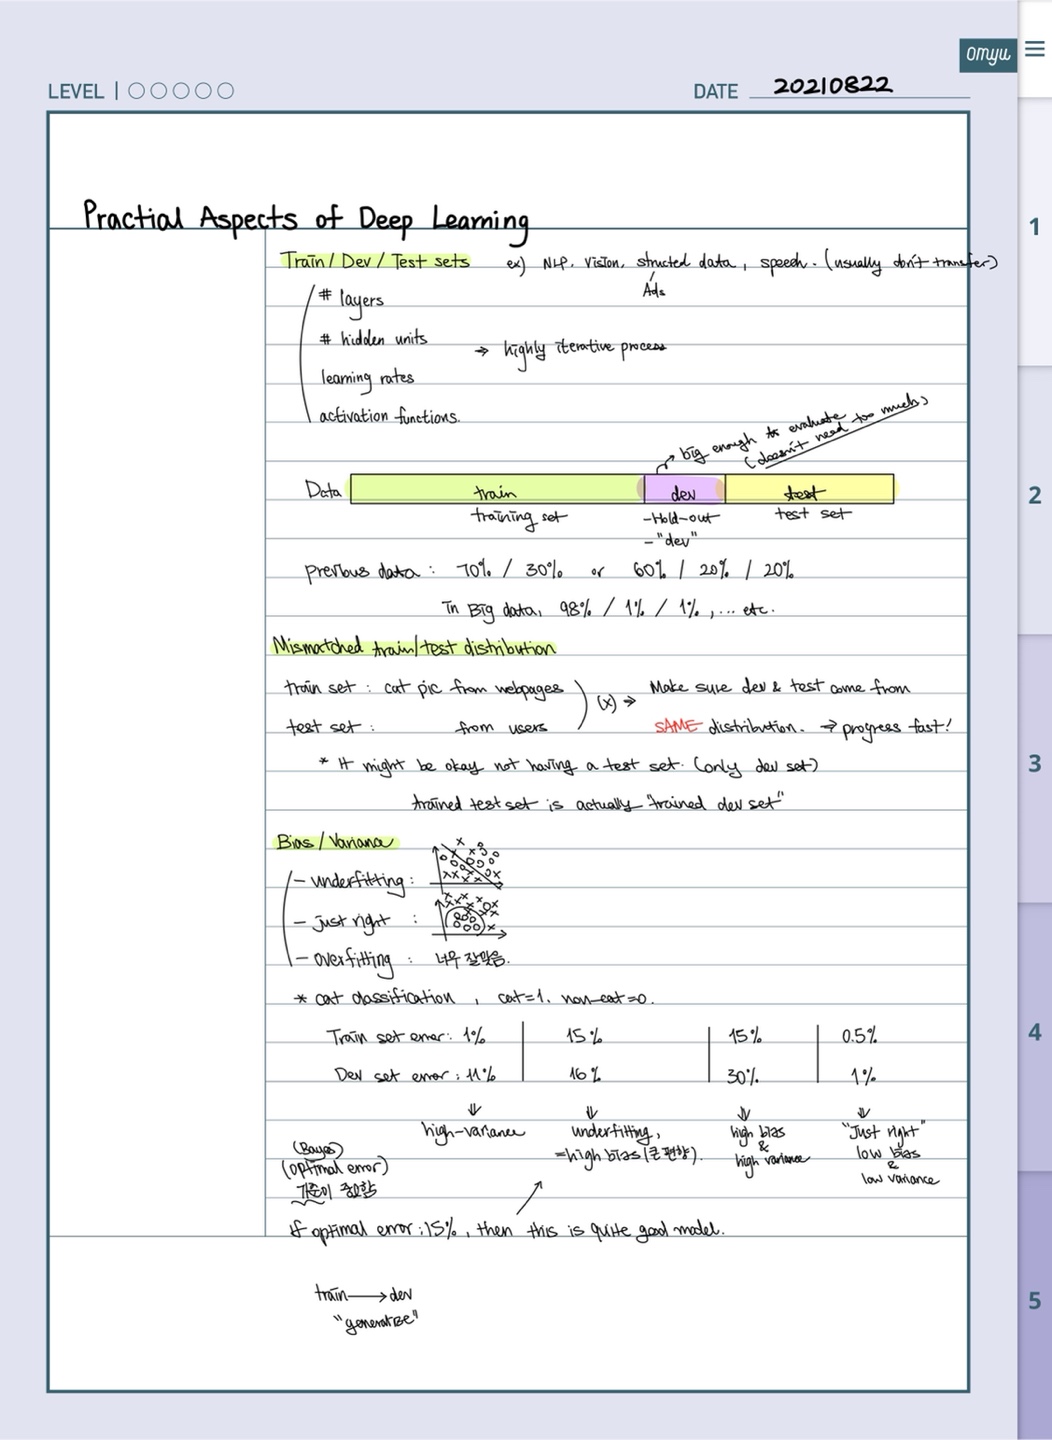 omyu
LEVEL
DATE 20210822
Practial Aspects of Deep Learning
Train / Dev / Test sets ex) NLP. Vision, structed data, speech. (usually don't transfer)
Ads
# layers
# hidden units
→ highly iterative process
learning rates
activation functions.
big enough to evaluate
(doesn't need too much)
Data train dev test
training set -Hold-out test set
- "dev"
previous data : 70% / 30% or 60% / 20% / 20%
in Big data, 98% / 1% / 1% , ... etc.
Mismatched train/test distribution
train set : cat pic from webpages (x) → Make sure dev & test come from
test set : from users SAME distribution. → progress fast!
* It might be okay not having a test set. (only dev set)
trained test set is actually "trained dev set"
Bias / Variance
- underfitting :
- just right :
- overfitting : 너무 잘맞음.
* cat classification , cat=1. non-cat=0.
Train set error : 1% 15% 15% 0.5%
Dev set error : 11% 16% 30% 1%
high-variance underfitting, high bias "Just right"
=high bias (큰 편향). & low bias
high variance &
low variance
(Bayes)
(optimal error)
기준이 중요함
if optimal error : 15%, then this is quite good model.
train → dev
"generalize"
1
2
3
4
5